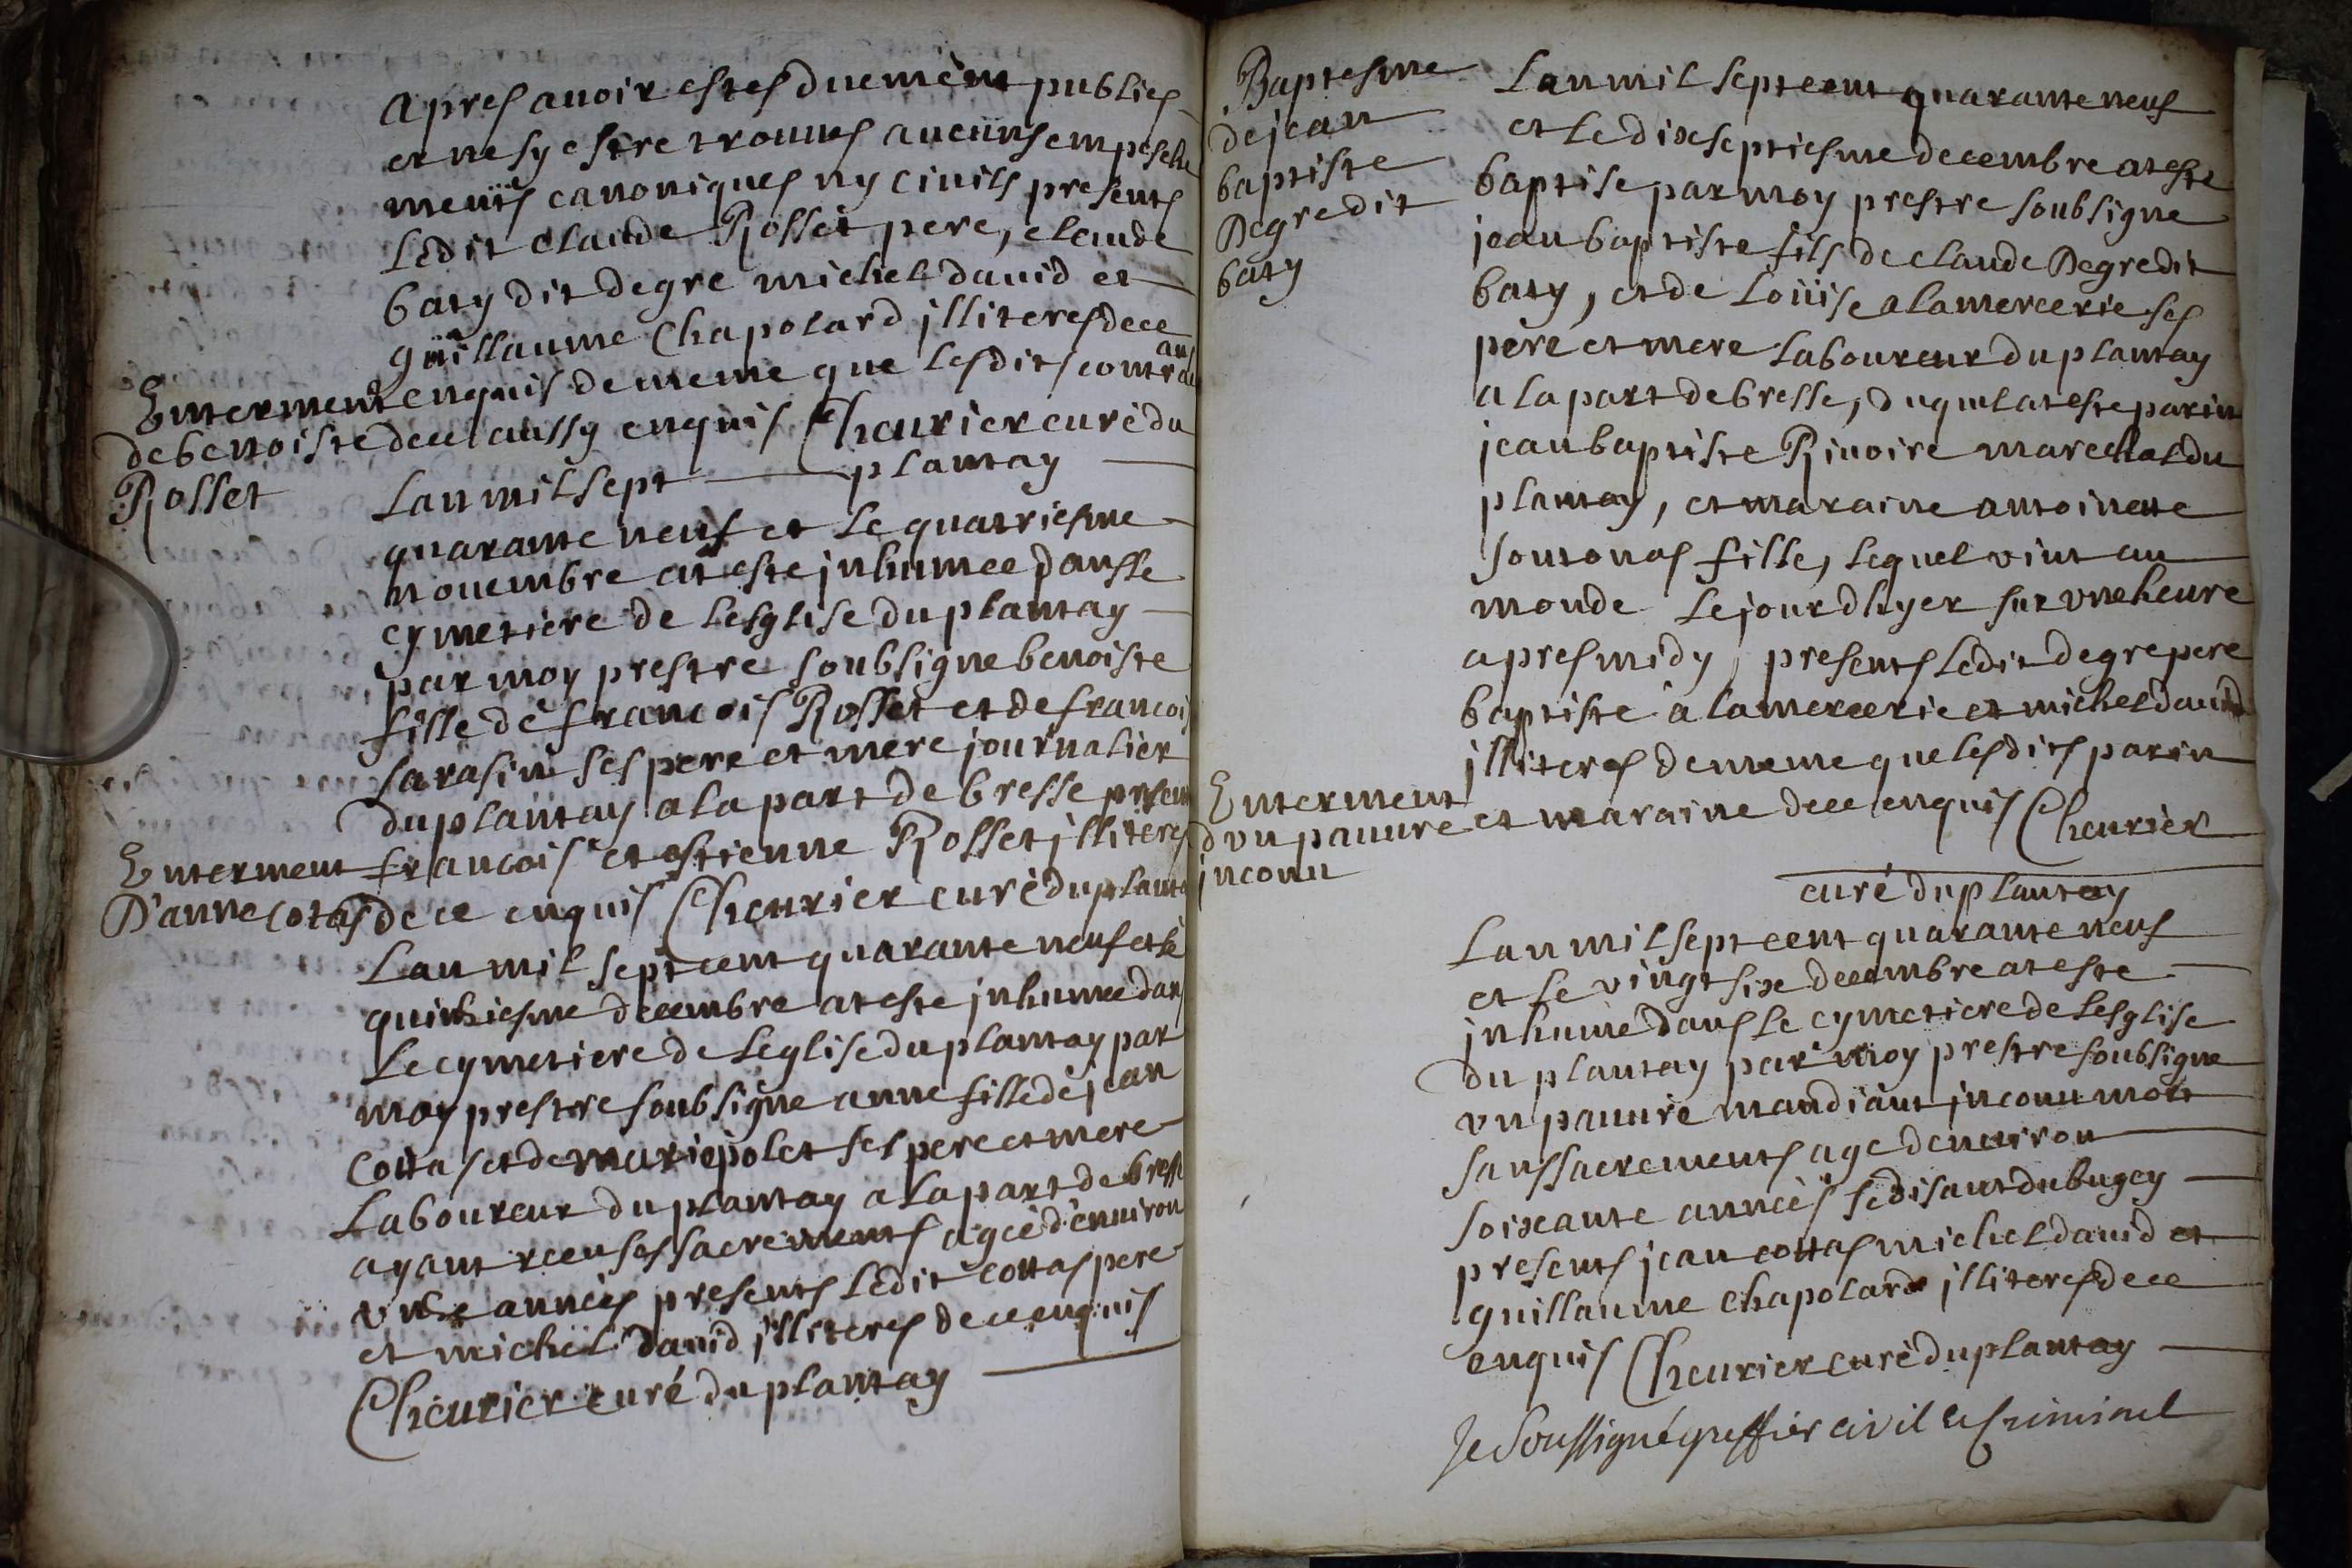 apres auoir estes duement publies
et ne sy estre trouues aucuns empesche
ments canoniques ny ciuils presents
ledit claude Rosset pere, claude
baty dit degre michel dauid et
guillaume Chapolard illiteres de ce
enquis de meme que lesdits contrac
ans
aussy enquis Cheurier curé du
plantay
Enterment
de benoiste
Rosset
Lan mil sept
quarante neuf et le quatriesme
nouembre at este inhumee dans le
cymetiere de lesglise du plantay
par moy prestre soubsigne benoiste
fille de francois Rosset et de francois
sarasin ses pere et mere journalier
du plantay a la part de bresse present
francois et estienne Rosset illiteres
de ce enquis Cheurier curé du planta
Enterment
D'anne cotas
Lan mil sept cent quarante neuf et le
quinziesme decembre at este inhumee dans
le cymetiere de leglise du plantay par
moy prestre soubsigne anne fille de jean
cottas et de marie polet ses pere et mere
laboureur du plantay a la part de bresse
ayant receu ses sacrements agee d'enuiron
vnze annees presents ledit cottas pere
et michel dauid illiteres de ce enquis
Cheurier curé du plantay
Baptesme
de jean
baptiste
Degre dit
baty
Lan mil sept cent quarante neuf
et le dixseptiesme decembre at este
baptise par moy prestre soubsigne
jean baptiste fils de claude Degre dit
baty, et de Loüise alamercerie ses
pere et mere laboureur du plantay
a la part de bresse, duquel at este parin
jean baptiste Riuoire marechal du
plantay, et maraine antoinette
soutonas fille, lequel vint au
monde le jour dhyer sur vne heure
apres midy, presents ledit degre pere
baptiste a lamercerie et michel dauid
illiteres de meme que lesdits parin
et maraine de ce enquis Cheurier
curé du plantay
Enterment
d vn pauure
inconu
Lan mil sept cent quarante neuf
et le vingt six decembre at este
inhumé dans le cymetiere de lesglise
du plantay par moy prestre soubsigne
vn pauure mandiant inconu mort
sans sacrements age denuiron
soixante annees se disant du bugey
presents jean cottas michel dauid et
guillaume chapolard illiteres de ce
enquis Cheurier curé du plantay
Je soussigné greffier civil et criminel